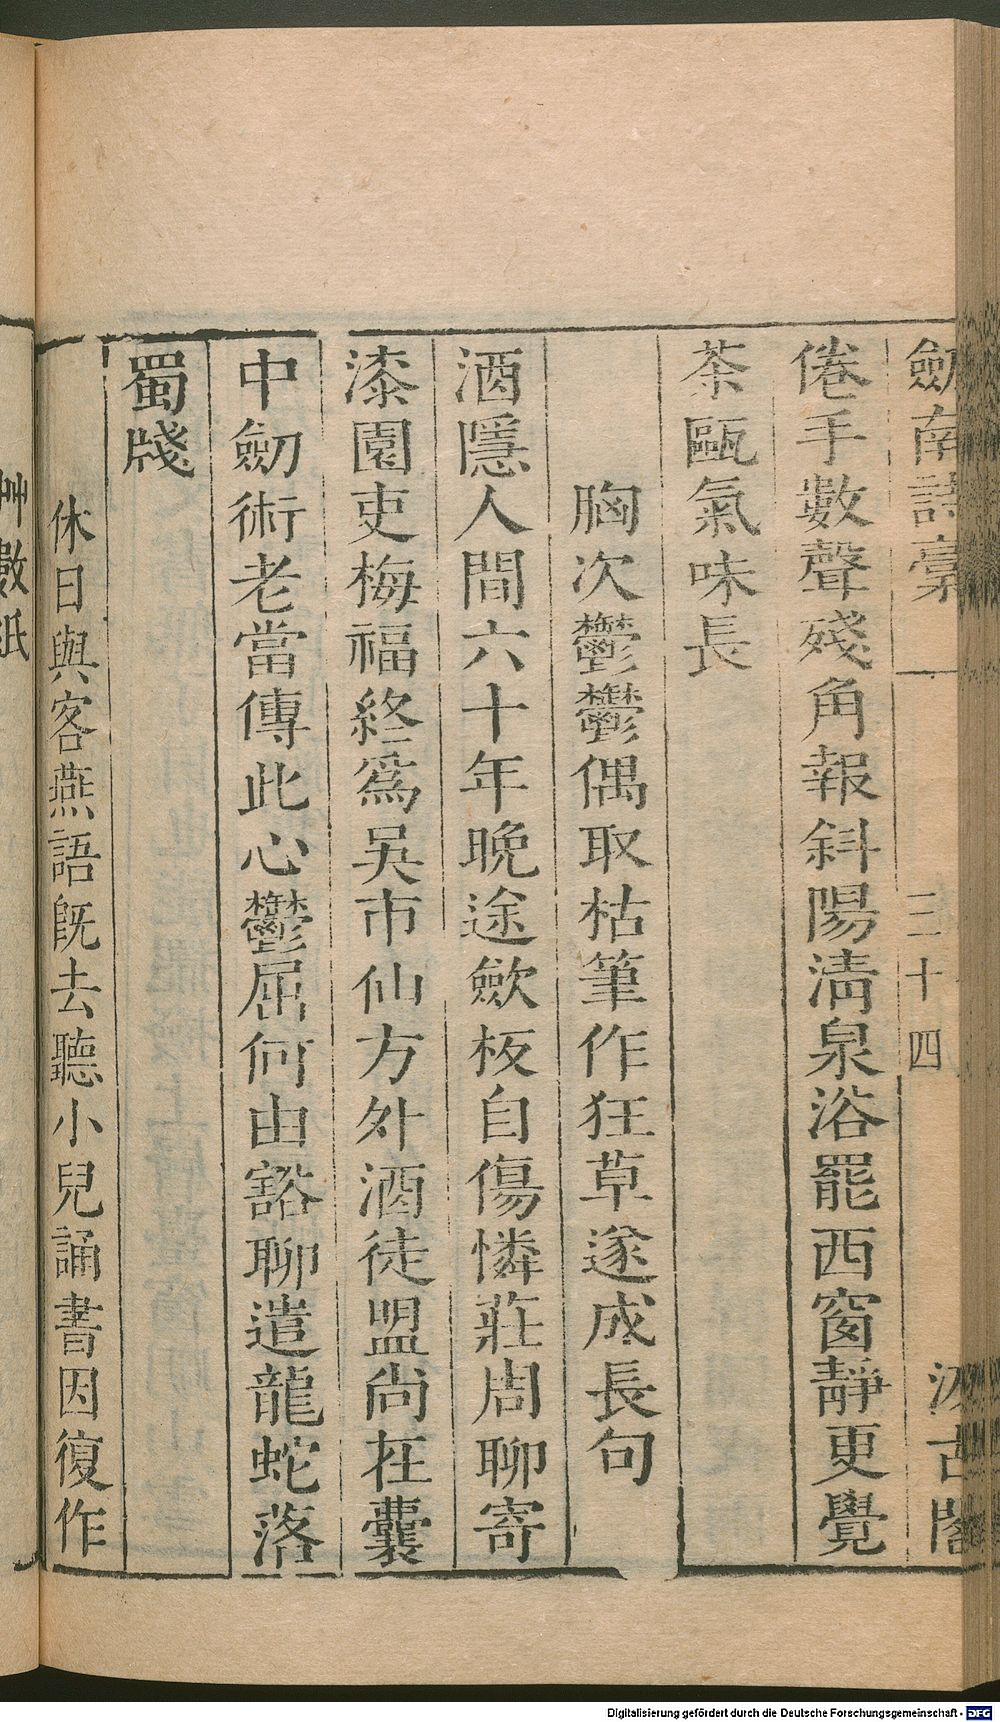 劒南詩稾
三十四
汲古閣
倦手數聲殘角報斜陽淸泉浴罷西窗靜更覺
茶甌氣味長
胸次鬱鬱偶取枯筆作狂草遂成長句
酒隱人間六十年晚途歛板自傷憐莊周聊寄
漆園吏梅福終爲吳市仙方外酒徒盟尚在囊
中劒術老當傳此心鬱屈何由豁聊遣龍蛇落
蜀牋
休日與客燕語旣去聽小兒誦書因復作
艸數紙
Digitalisierung gefördert durch die Deutsche Forschungsgemeinschaft - DFG